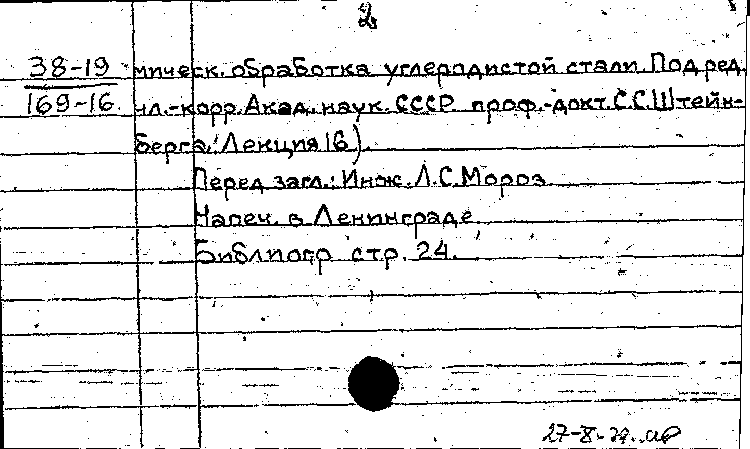 2
38-19 мическ. обработка углеродистой стали. Под ред.
169-16 чл.-корр. Акад. наук СССР проф.-докт. С.С.Штейн-
берга. Лекция 16).
Перед загл.: Инж. Л.С.Мороз
Напеч. в Ленинграде.
Библиогр стр. 24.